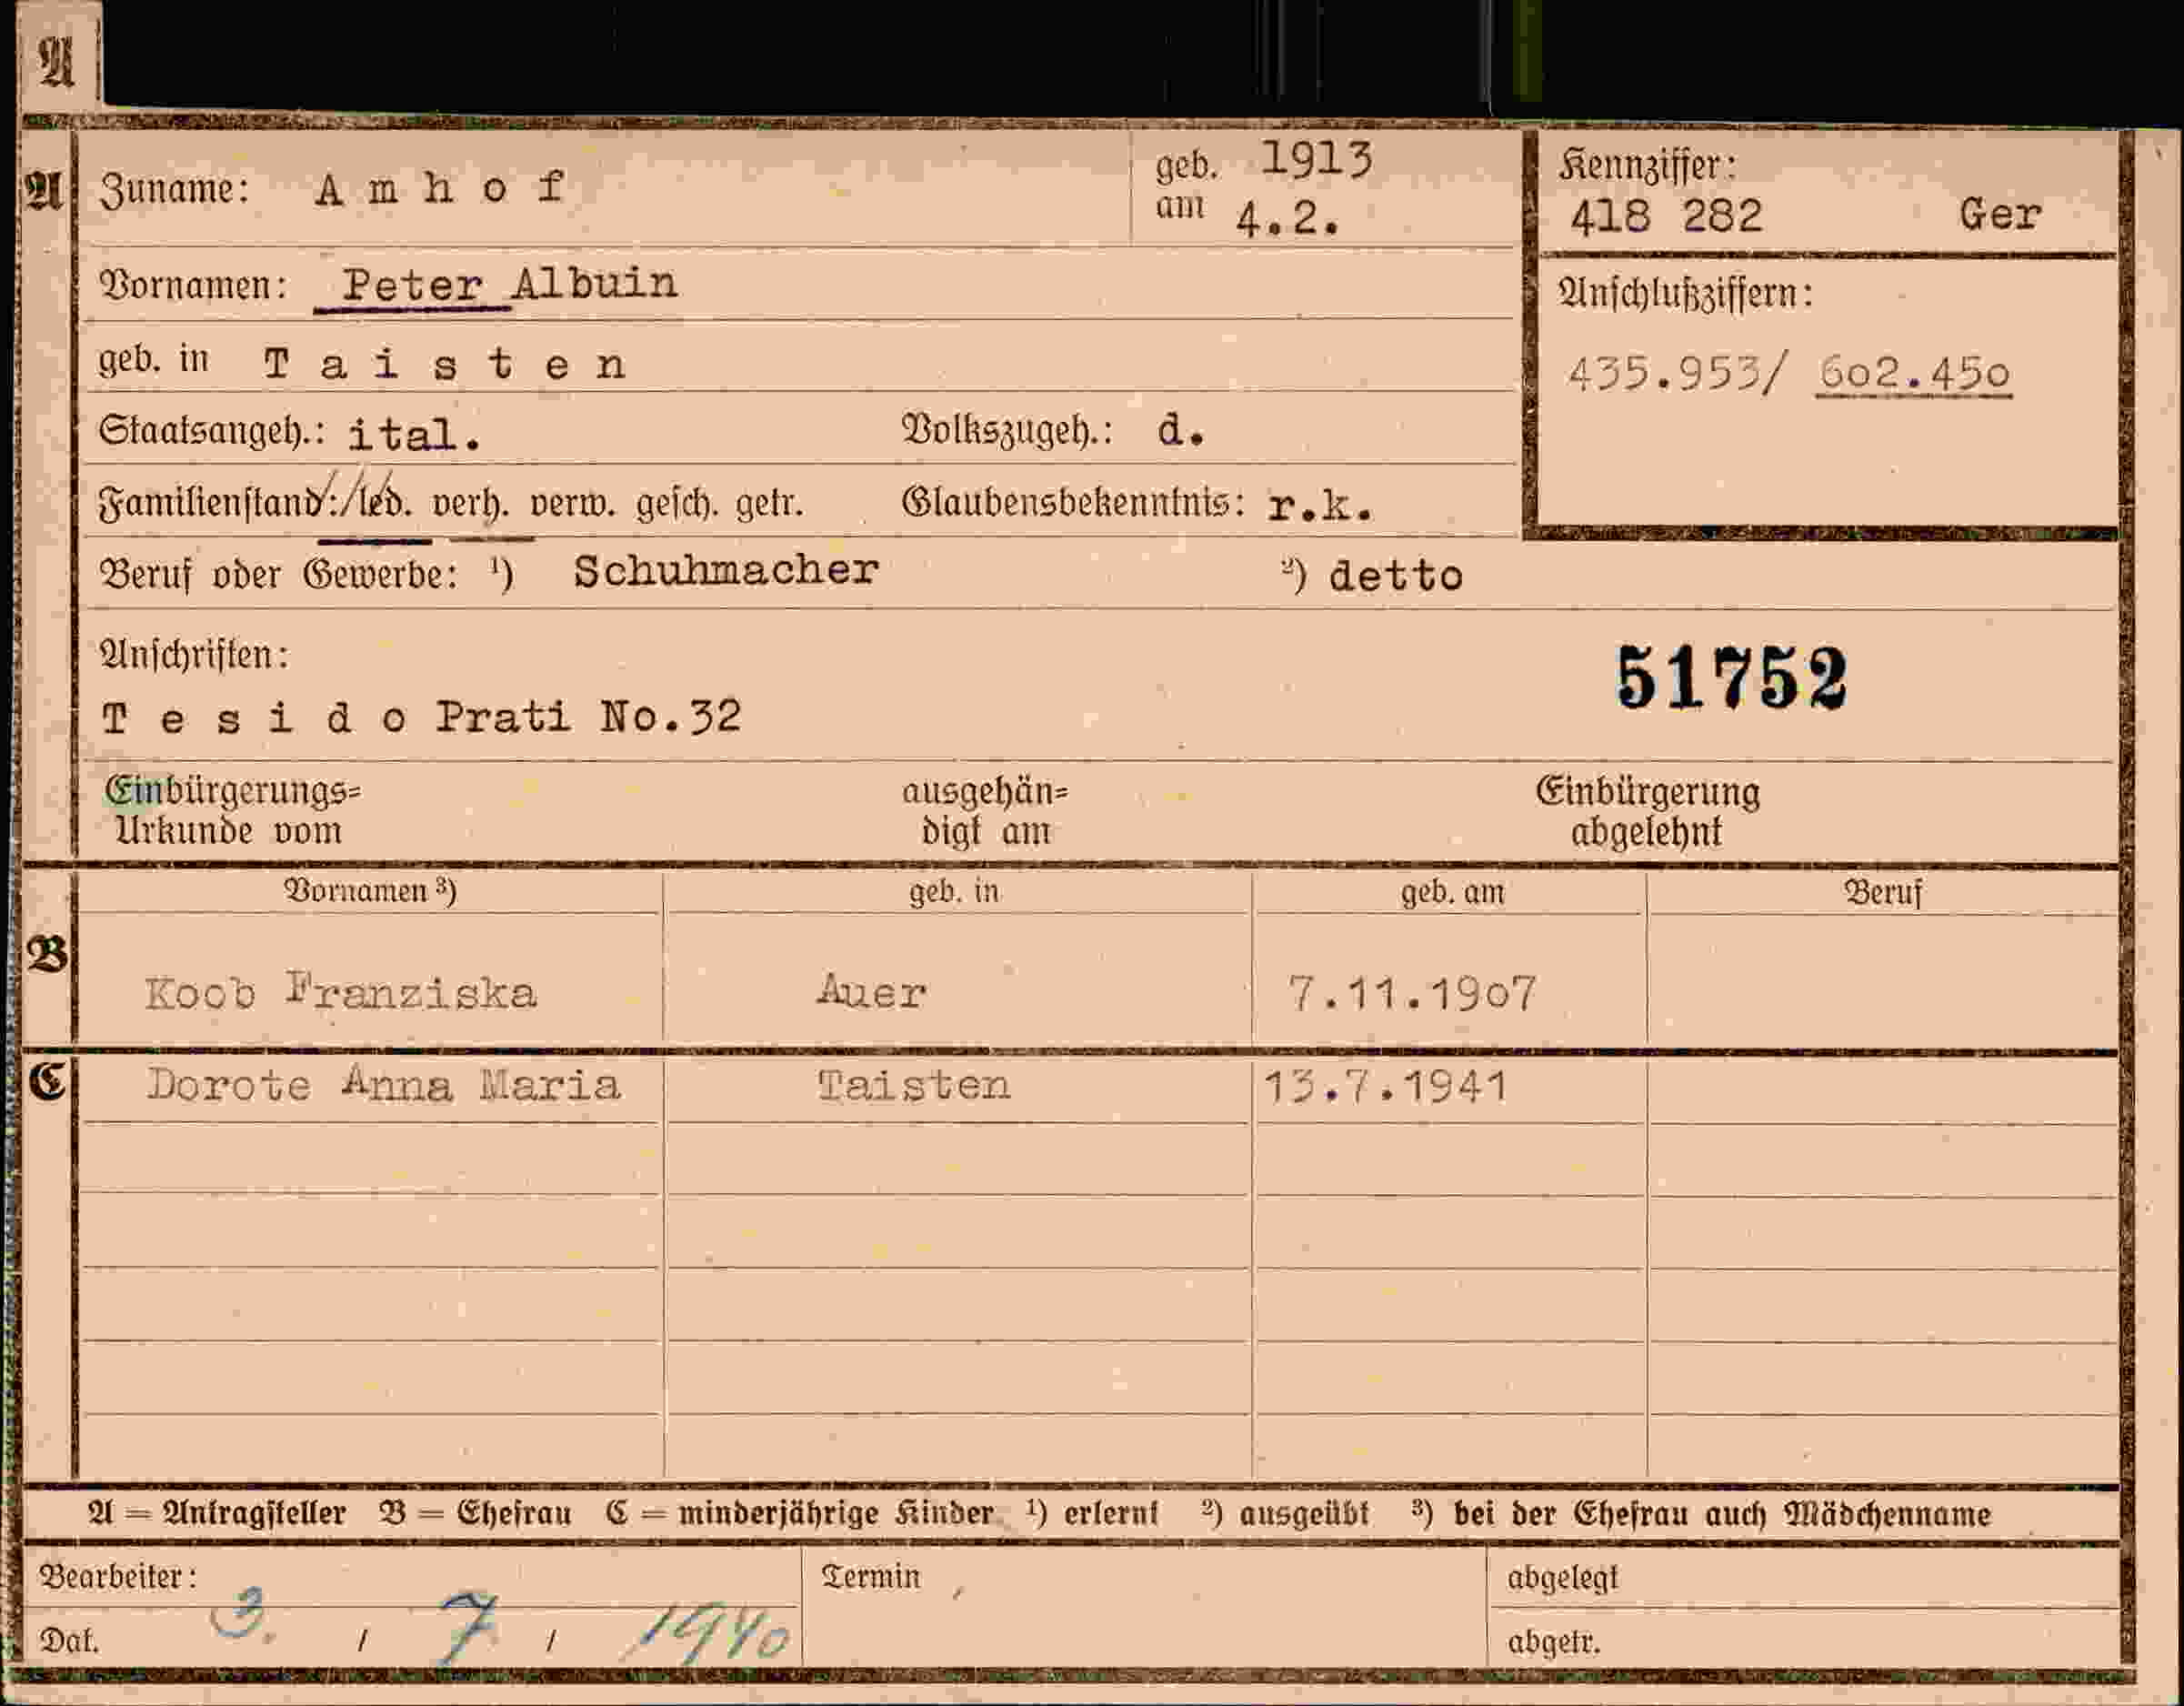 A
A Zuname: Amhof geb. am 1913 4.2. Kennziffer: 418 282 Ger
Vornamen: Peter Albuin Anschlußziffern:
geb. in Taisten 435.953/ 602.450
Staatsangeh.: ital. Volkszugeh.: d.
Familienstand: led. verh. verw. gesch. getr. Glaubensbekenntnis: r.k.
Beruf oder Gewerbe: ¹) Schuhmacher ²) detto
Anschriften: 51752
Tesido Prati No.32
Einbürgerungs= ausgehän= Einbürgerung
Urkunde vom digt am abgelehnt
Vornamen ³) geb. in geb. am Beruf
B
Koob Franziska Auer 7.11.1907
C Dorote Anna Maria Taisten 13.7.1941
A = Antragsteller B = Ehefrau C = minderjährige Kinder ¹) erlernt ²) ausgeübt ³) bei der Ehefrau auch Mädchenname
Bearbeiter: Termin abgelegt
Dat. 3. / 7 / 1940 abgetr.